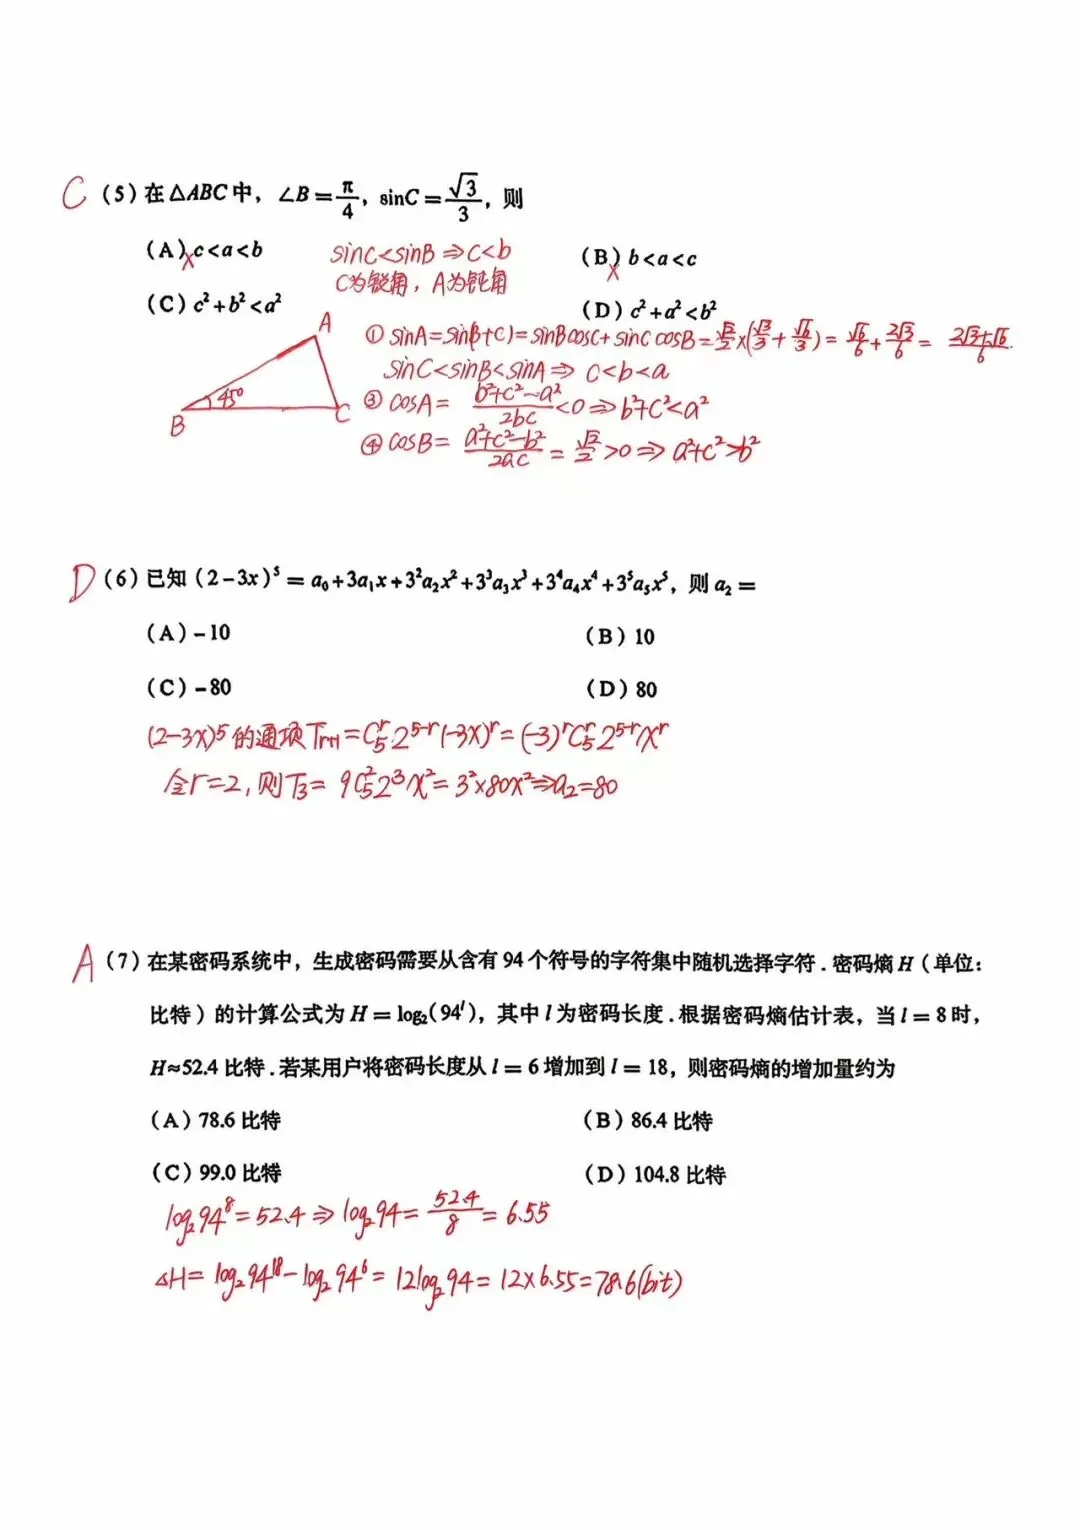 C (5) 在△ABC中，∠B=π/4，sinC=√3/3，则
(A) c<a<b
(B) b<a<c
sinC<sinB⇒c<b
C为锐角，A为钝角
(C) c²+b²<a²
(D) c²+a²<b²
A
45°
B
C
① sinA=sin(B+C)=sinBcosC+sinCcosB=√2/2×(√3/3+√6/3)=√6/6+2√3/6=(2√3+√6)/6.
sinC<sinB<sinA⇒c<b<a
③ cosA=(b²+c²-a²)/2bc<0⇒b²+c²<a²
④ cosB=(a²+c²-b²)/2ac=√2/2>0⇒a²+c²>b²
D (6) 已知(2-3x)⁵=a₀+3a₁x+3²a₂x²+3³a₃x³+3⁴a₄x⁴+3⁵a₅x⁵，则a₂=
(A) -10
(B) 10
(C) -80
(D) 80
(2-3x)⁵的通项Tr+1=C₅ʳ2⁵⁻ʳ(-3x)ʳ=(-3)ʳC₅ʳ2⁵⁻ʳxʳ
令r=2，则T₃=9C₅²2³x²=3²×80x²⇒a₂=80
A (7) 在某密码系统中，生成密码需要从含有94个符号的字符集中随机选择字符.密码熵H（单位：
比特）的计算公式为H=log₂(94ˡ)，其中l为密码长度.根据密码熵估计表，当l=8时，
H≈52.4比特.若某用户将密码长度从l=6增加到l=18，则密码熵的增加量约为
(A) 78.6比特
(B) 86.4比特
(C) 99.0比特
(D) 104.8比特
log₂94⁸=52.4⇒log₂94=52.4/8=6.55
△H=log₂94¹⁸-log₂94⁶=12log₂94=12×6.55=78.6(bit)